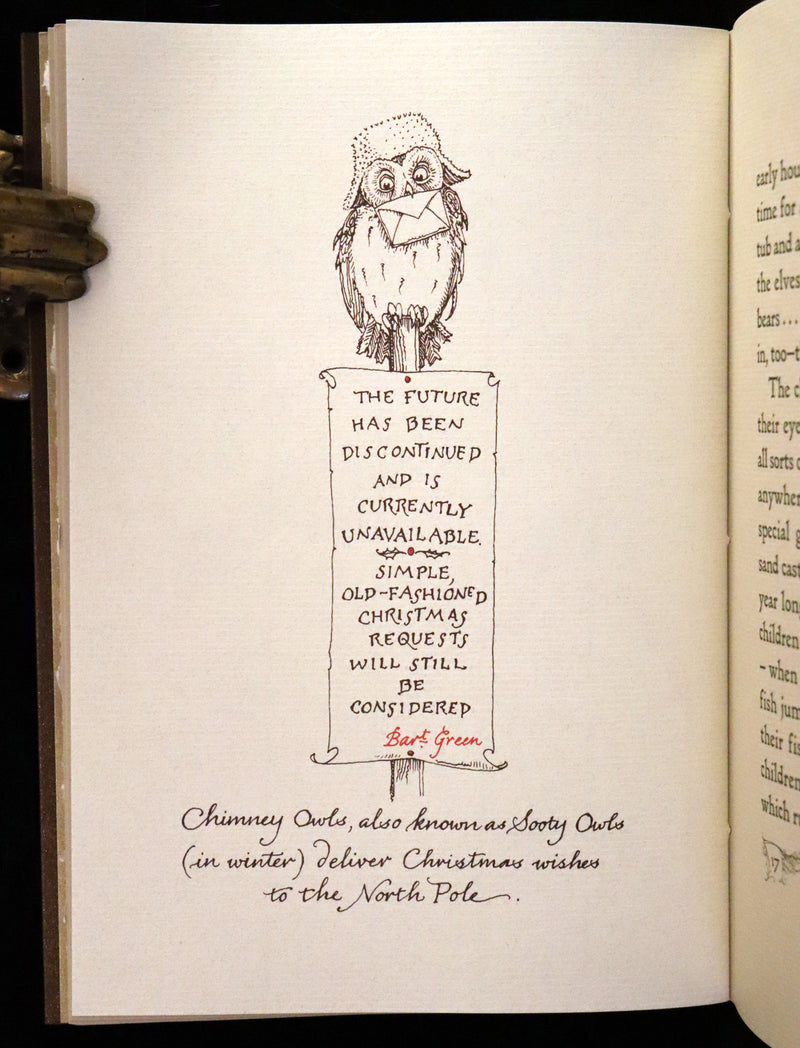 THE FUTURE
HAS BEEN
DISCONTINUED
AND IS
CURRENTLY
UNAVAILABLE.
SIMPLE,
OLD-FASHIONED
CHRISTMAS
REQUESTS
WILL STILL
BE
CONSIDERED
Bart Green
Chimney Owls, also known as Sooty Owls
(in winter) deliver Christmas wishes
to the North Pole.
early
time for
tub and
the elves
bears...
in, too-
The
their
all sorts
special
sand
year
children
- when
fish
their
children
which
17